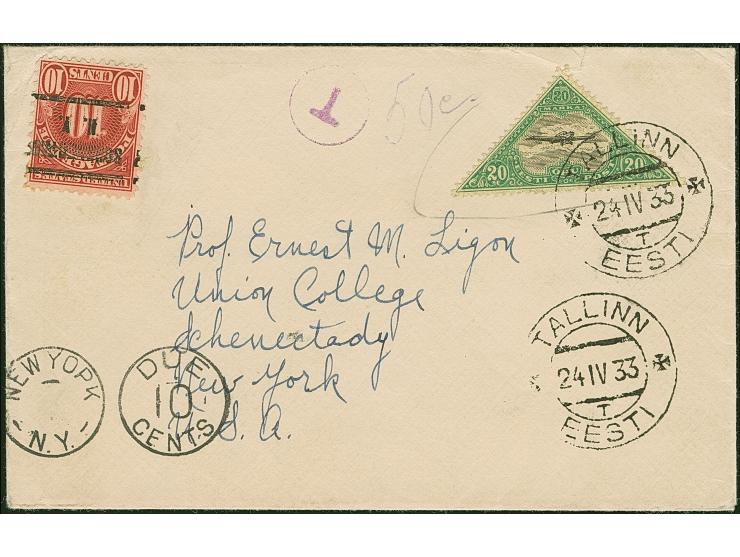 10 CENTS 10
10
UNITED STATES
T
50c
20
MARKA
20 EESTI POST 20
TALLINN
24 IV 33
T
EESTI
Prof. Ernest M. Ligon
Union College
Schenectady
New York
U. S. A.
NEW YORK
N.Y.
DUE
10
CENTS
TALLINN
24 IV 33
T
EESTI